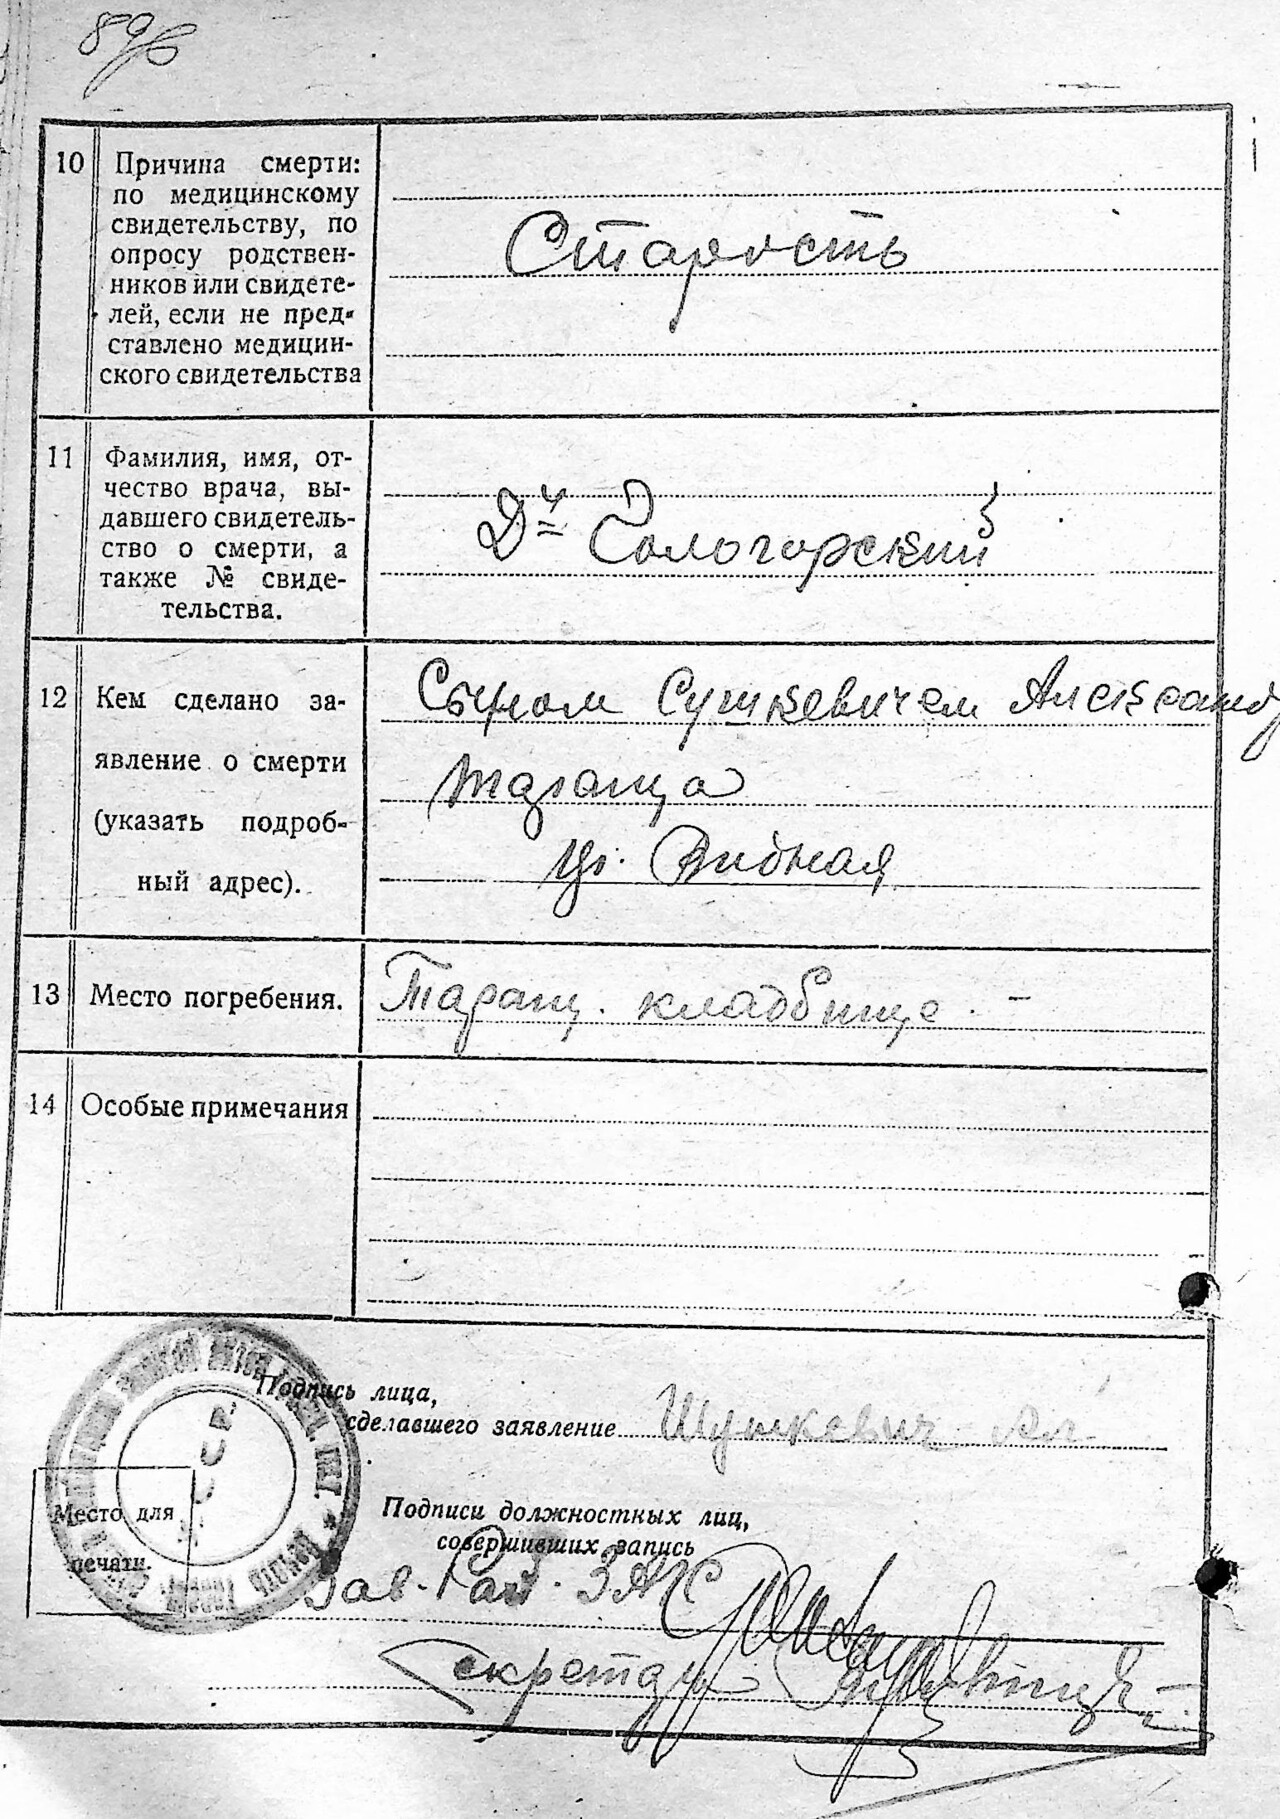 10 Причина смерти:
по медицинскому
свидетельству, по
опросу родствен-
ников или свидете-
лей, если не пред-
ставлено медицин-
ского свидетельства
Старость
11 Фамилия, имя, от-
чество врача, вы-
давшего свидетель-
ство о смерти, а
также № свиде-
тельства.
Гологорский
12 Кем сделано за-
явление о смерти
(указать подроб-
ный адрес).
Сыном Сушкевичем Александ
Таращa
ул. Видная
13 Место погребения.
Таращ. кладбище -
14 Особые примечания
Подпись лица,
сделавшего заявление Шушкевич Ал
Место для
печати.
Подписи должностных лиц,
совершивших запись
Зав. Рай. ЗАГС
Секретарь